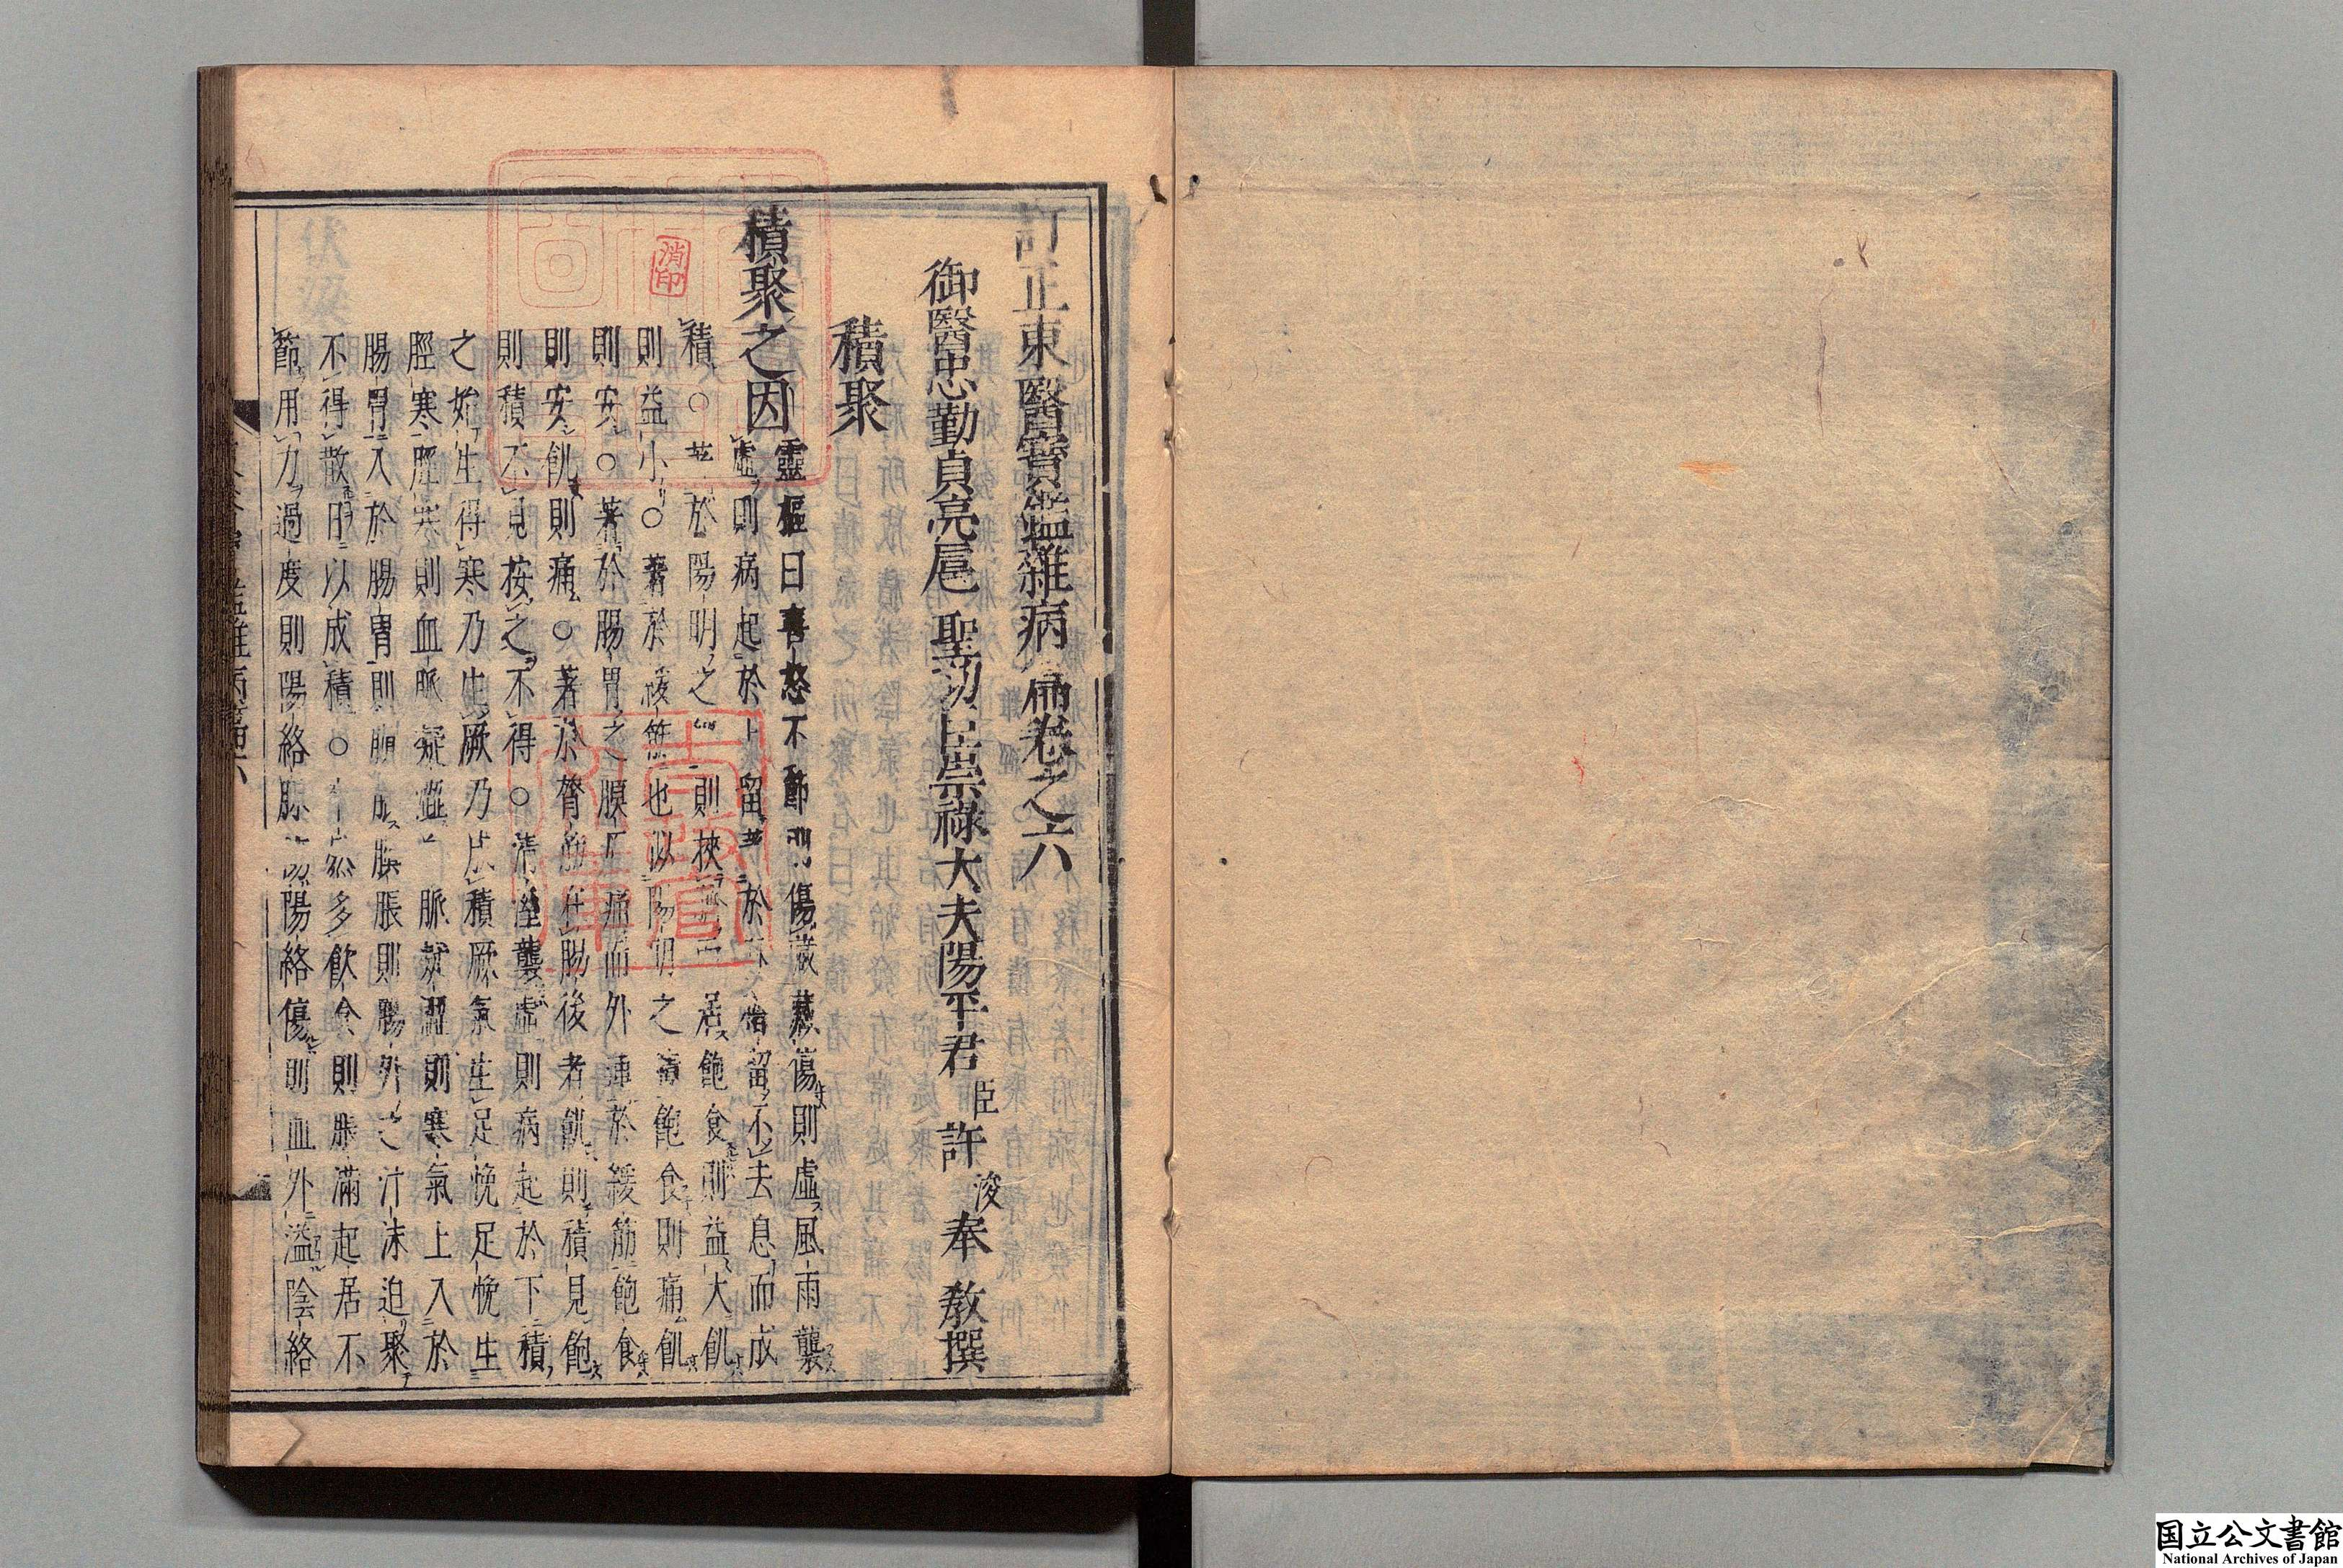 訂正東醫寶鑑雜病篇卷之六
御醫忠勤貞亮扈聖功臣崇祿大夫陽平君臣許浚奉教撰
積聚
積聚之因
靈樞曰喜怒不節則傷藏藏傷則虛風雨襲
虛則病起於上留著於脉稽留不去息而成
積○著於陽明之經則挾臍而居飽食則益大飢
則益小○著於緩筋也似陽明之積飽食則痛飢
則安○著於腸胃之膜原痛而外連於緩筋飽食
則安飢則痛○著於膂筋在腸後者飢則積見飽
則積不見按之不得○清濕襲虛則病起於下積
之始生得寒乃生厥乃成積厥氣生足悗足悗生
脛寒脛寒則血脈凝澁 脈凝澀則寒氣上入於
腸胃入於腸胃則䐜脹䐜脹則腸外之汁沫迫聚
不得散日以成積○卒然多飲食則脹滿起居不
節用力過度則陽絡脉傷陽絡傷則血外溢陰絡
消印
国立公文書館
National Archives of Japan